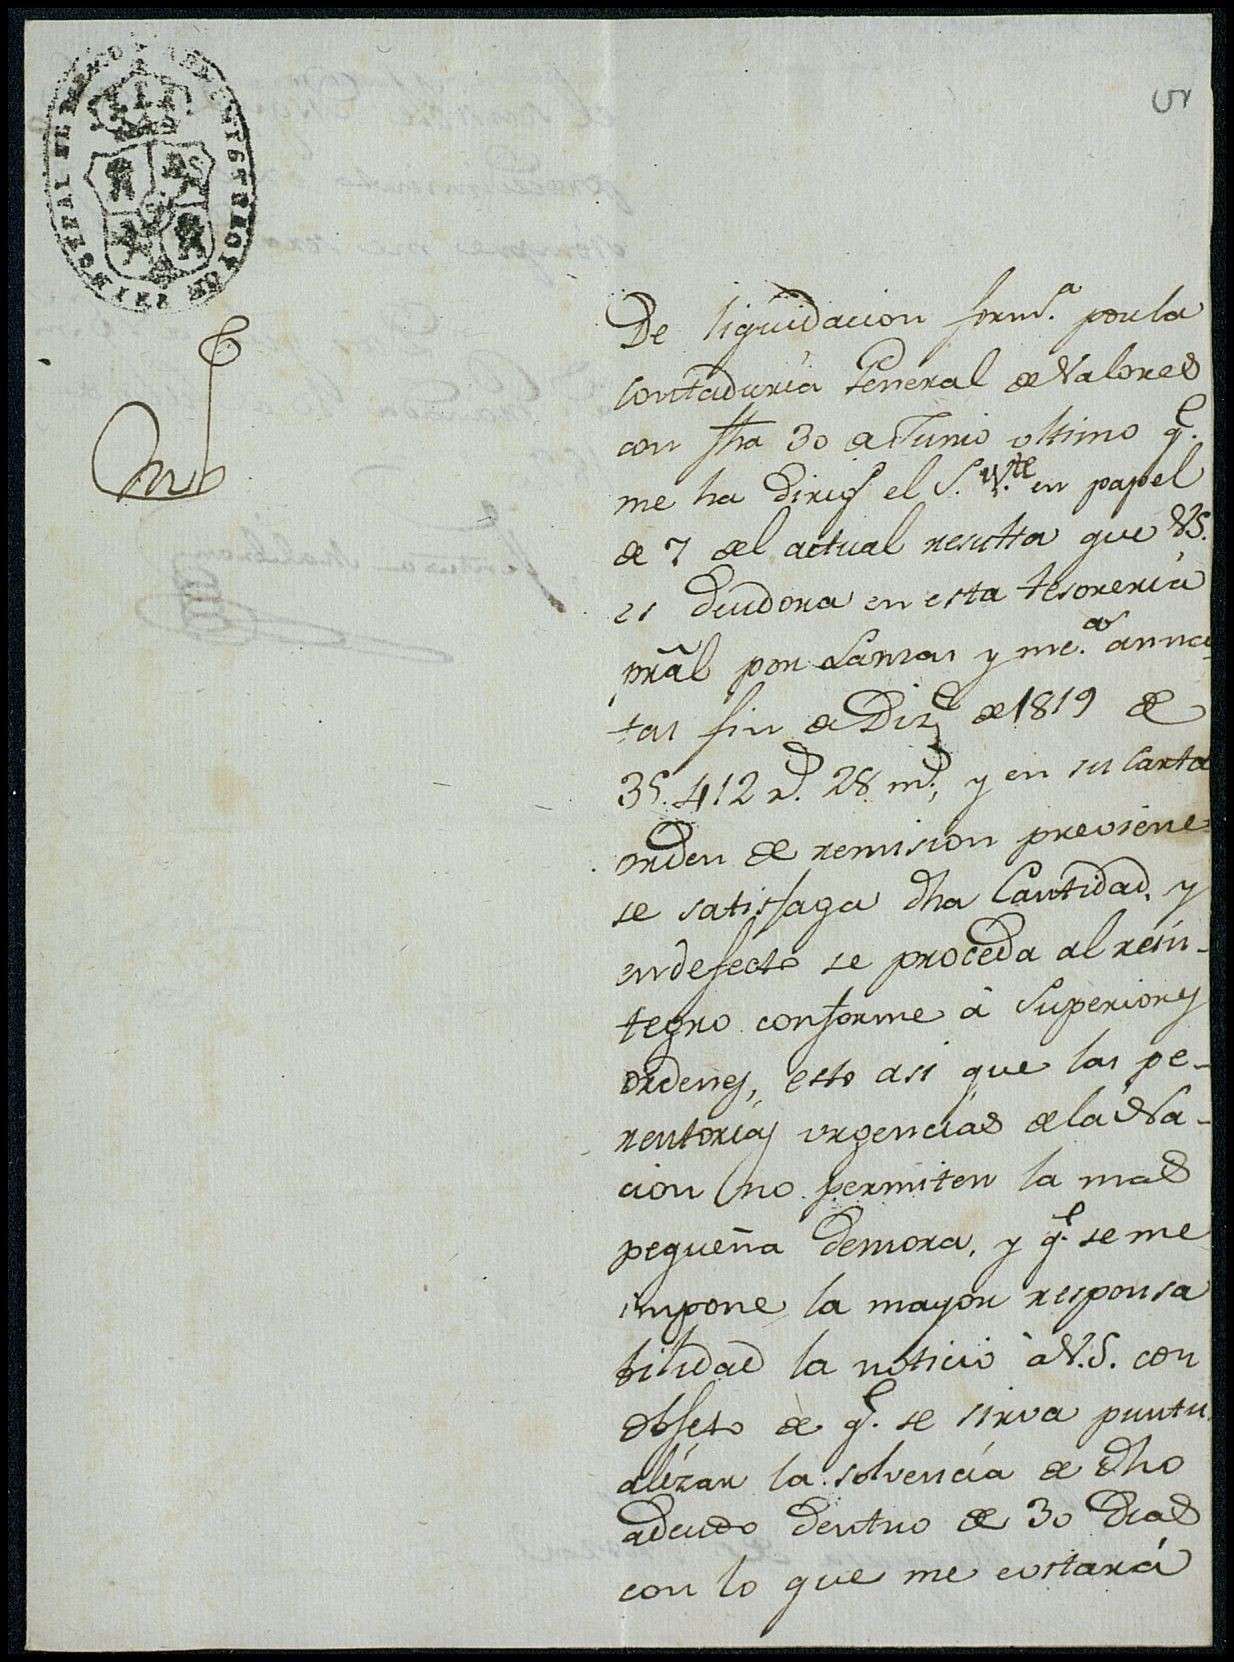 De liquidacion form.ª por la
Contaduria General de Valores
con fha 30 de Junio ultimo q.e
me ha dirig.do el S. Y.te en papel
de 7 del actual resulta que VS.
es deudora en esta tesoreria
pral por Lanzas y me.as anna
tas fin de Diz.e de 1819 de
35.412 r.s 28 m.s, y en su Carta
orden de remision previene
se satisfaga dha Cantidad, y
en defecto se proceda al rein-
tegro conforme à Superiores
ordenes, esto asi que las pe-
rentorias urgencias de la Na-
cion no permiten la mas
pequeña demora, y q.e se me
impone la mayor responsa
bilidad la noticio à V.S. con
objeto de q.e se sirva puntu
alizar la solvencia de dho
adeudo dentro de 30 dias
con lo que me evitará